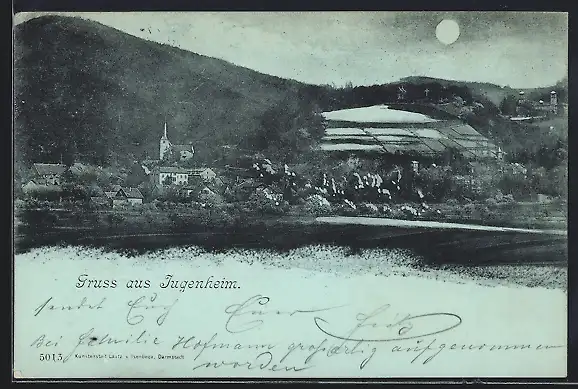 Gruss aus Jugenheim.
sendet Euch Euer Fritz
Bei Familie Hofmann großartig aufgenommen
worden
5015 Kunstanstalt Lautz & Isenbeck, Darmstadt